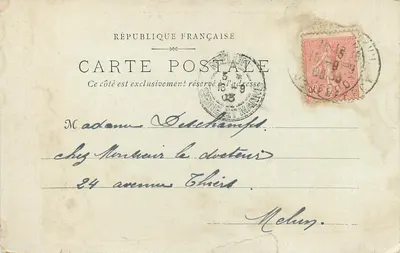 RÉPUBLIQUE FRANÇAISE
CARTE POSTALE
Ce côté est exclusivement réservé à l'adresse
Madame Deschamps
chez Monsieur le docteur
24 avenue Thiers
Melun